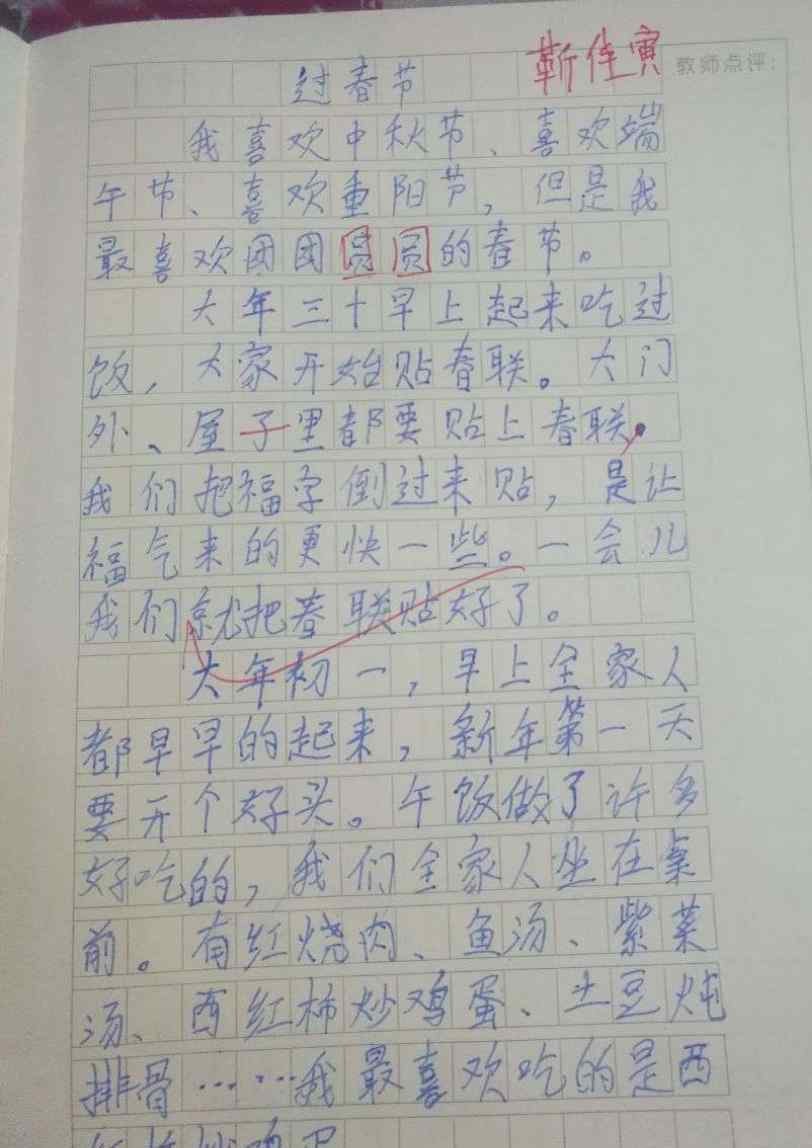 靳佳寅
教师点评:
过春节
我喜欢中秋节、喜欢端
午节、喜欢重阳节,但是我
最喜欢团团圆圆的春节。
大年三十早上起来吃过
饭,大家开始贴春联。大门
外、屋子里都要贴上春联。
我们把福字倒过来贴,是让
福气来的更快一些。一会儿
我们就把春联贴好了。
大年初一,早上全家人
都早早的起来,新年第一天
要开个好头。午饭做了许多
好吃的,我们全家人坐在桌
前。有红烧肉、鱼汤、紫菜
汤、西红柿炒鸡蛋、土豆炖
排骨……我最喜欢吃的是西